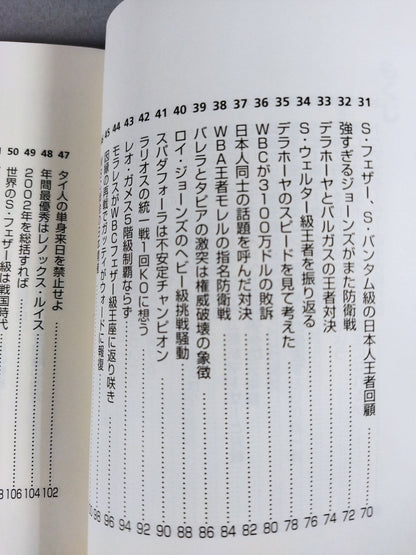 31 S・フェザー、S・バンタム級の日本人王者回顧 70
32 強すぎるジョーンズがまた防衛戦 72
33 デラホーヤとバルガスの王者対決 74
34 S・ウェルター級王者を振り返る 76
35 デラホーヤのスピードを見て考えた 78
36 WBCが3100万ドルの敗訴 80
37 日本人同士の話題を呼んだ対決 82
38 WBA王者モレルの指名防衛戦 84
39 バレラとタピアの激突は権威破壊の象徴 86
40 ロイ・ジョーンズのヘビー級挑戦騒動 88
41 スパダフォーラは不安定チャンピオン 90
42 ラリオスの統一戦1回KOに想う 92
43 レオ・ガメス5階級制覇ならず 94
44 モラレスがWBCフェザー級王座に返り咲き 96
45 因縁の再戦でガッティがウォードに報復 98
47 タイ人の単身来日を禁止せよ 102
48 年間最優秀はレノックス・ルイス 104
49 2002年を総括すれば 106
50 世界のS・フェザー級は戦国時代